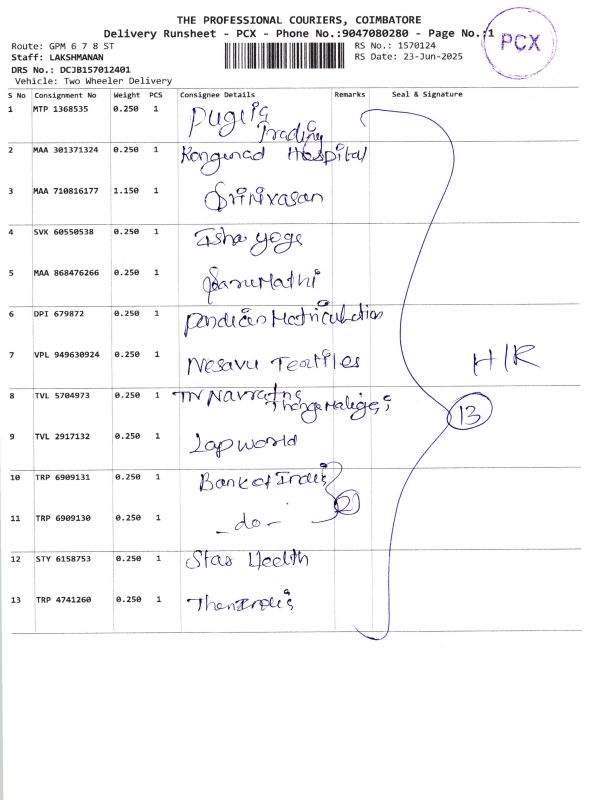 THE PROFESSIONAL COURIERS, COIMBATORE
Delivery Runsheet - PCX - Phone No.:9047080280 - Page No.:1
PCX
Route: GPM 6 7 8 ST
RS No.: 1570124
Staff: LAKSHMANAN
RS Date: 23-Jun-2025
DRS No.: DCJB157012401
Vehicle: Two Wheeler Delivery
S No Consignment No Weight PCS Consignee Details Remarks Seal & Signature
1 MTP 1368535 0.250 1
Trading
2 MAA 301371324 0.250 1 Kongunad Hospital
3 MAA 710816177 1.150 1 Srinivasan
4 SVK 60550538 0.250 1 Isha yoga
5 MAA 868476266 0.250 1
6 DPI 679872 0.250 1 Matriculation
7 VPL 949630924 0.250 1 Nesavu Textiles
H/R
8 TVL 5704973 0.250 1 TN Navrathna
13
9 TVL 2917132 0.250 1 Lapworld
10 TRP 6909131 0.250 1 Bank of India
2
11 TRP 6909130 0.250 1 - do -
12 STY 6158753 0.250 1 Star Health
13 TRP 4741260 0.250 1